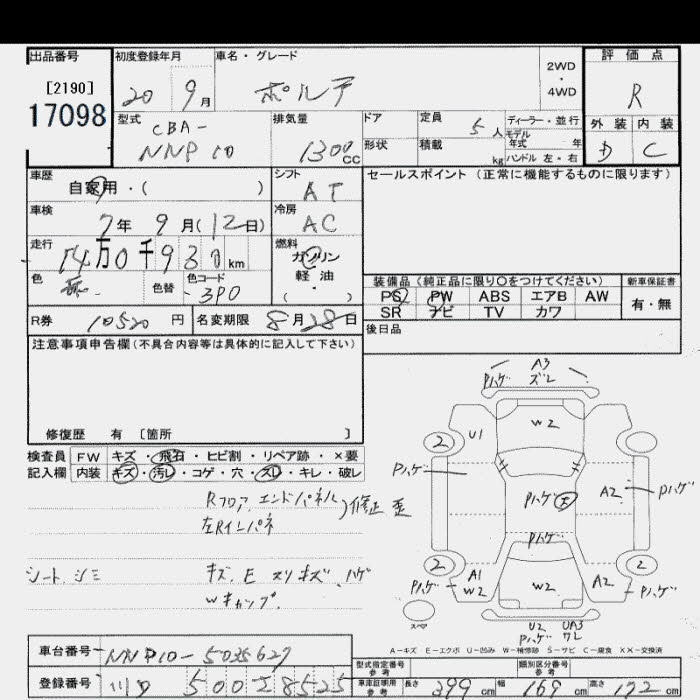 出品番号
[2190]
17098
初度登録年月
20 9月
車名・グレード
ポルテ
2WD
・
4WD
評価点
R
型式
CBA-
NNP10
排気量
1300cc
ドア
形状
定員 5人
積載 kg
ディーラー・並行
モデル年式 年
ハンドル 左・右
外装 内装
D C
車歴
自家用・( )
シフト
AT
セールスポイント (正常に機能するものに限ります)
車検
7年 9月(12日)
冷房
AC
走行
14万0千930km
燃料
ガソリン
軽・油
( )
色
色替
色コード
3P0
装備品 (純正品に限り○をつけてください)
新車保証書
PS PW ABS エアB AW
有・無
SR ナビ TV カワ
R券 10520円
名変期限 8月28日
後日品
注意事項申告欄(不具合内容等は具体的に記入して下さい)
修復歴 有 [箇所 ]
検査員 FW キズ・飛石・ヒビ割・リペア跡・×要
記入欄 内装 キズ・汚レ・コゲ・穴・スレ・キレ・破レ
Rフロア、エンドパネル
左Rインパネ
修正 歪
シート、シミ
キズ、E スリキズ、ハゲ
Wキカップ。
A3
Pハゲ ズレ
2 U1 W2 2
Pハゲ
Pハゲ 天
A2 Pハゲ
Pハゲ
2 2
Pハゲ A1 W2
W2
A2 Pハゲ
スペア
U2 UA3
Pハゲ ワレ
A-キズ E-エクボ U-凹み W-補修跡 S-サビ C-腐食 XX-交換済
車台番号 NNP10-5035627
登録番号 500 28525
型式指定番号
参考
類別区分番号
参考
車庫証明用
参考
長さ 399cm
幅 169cm
高さ 172cm